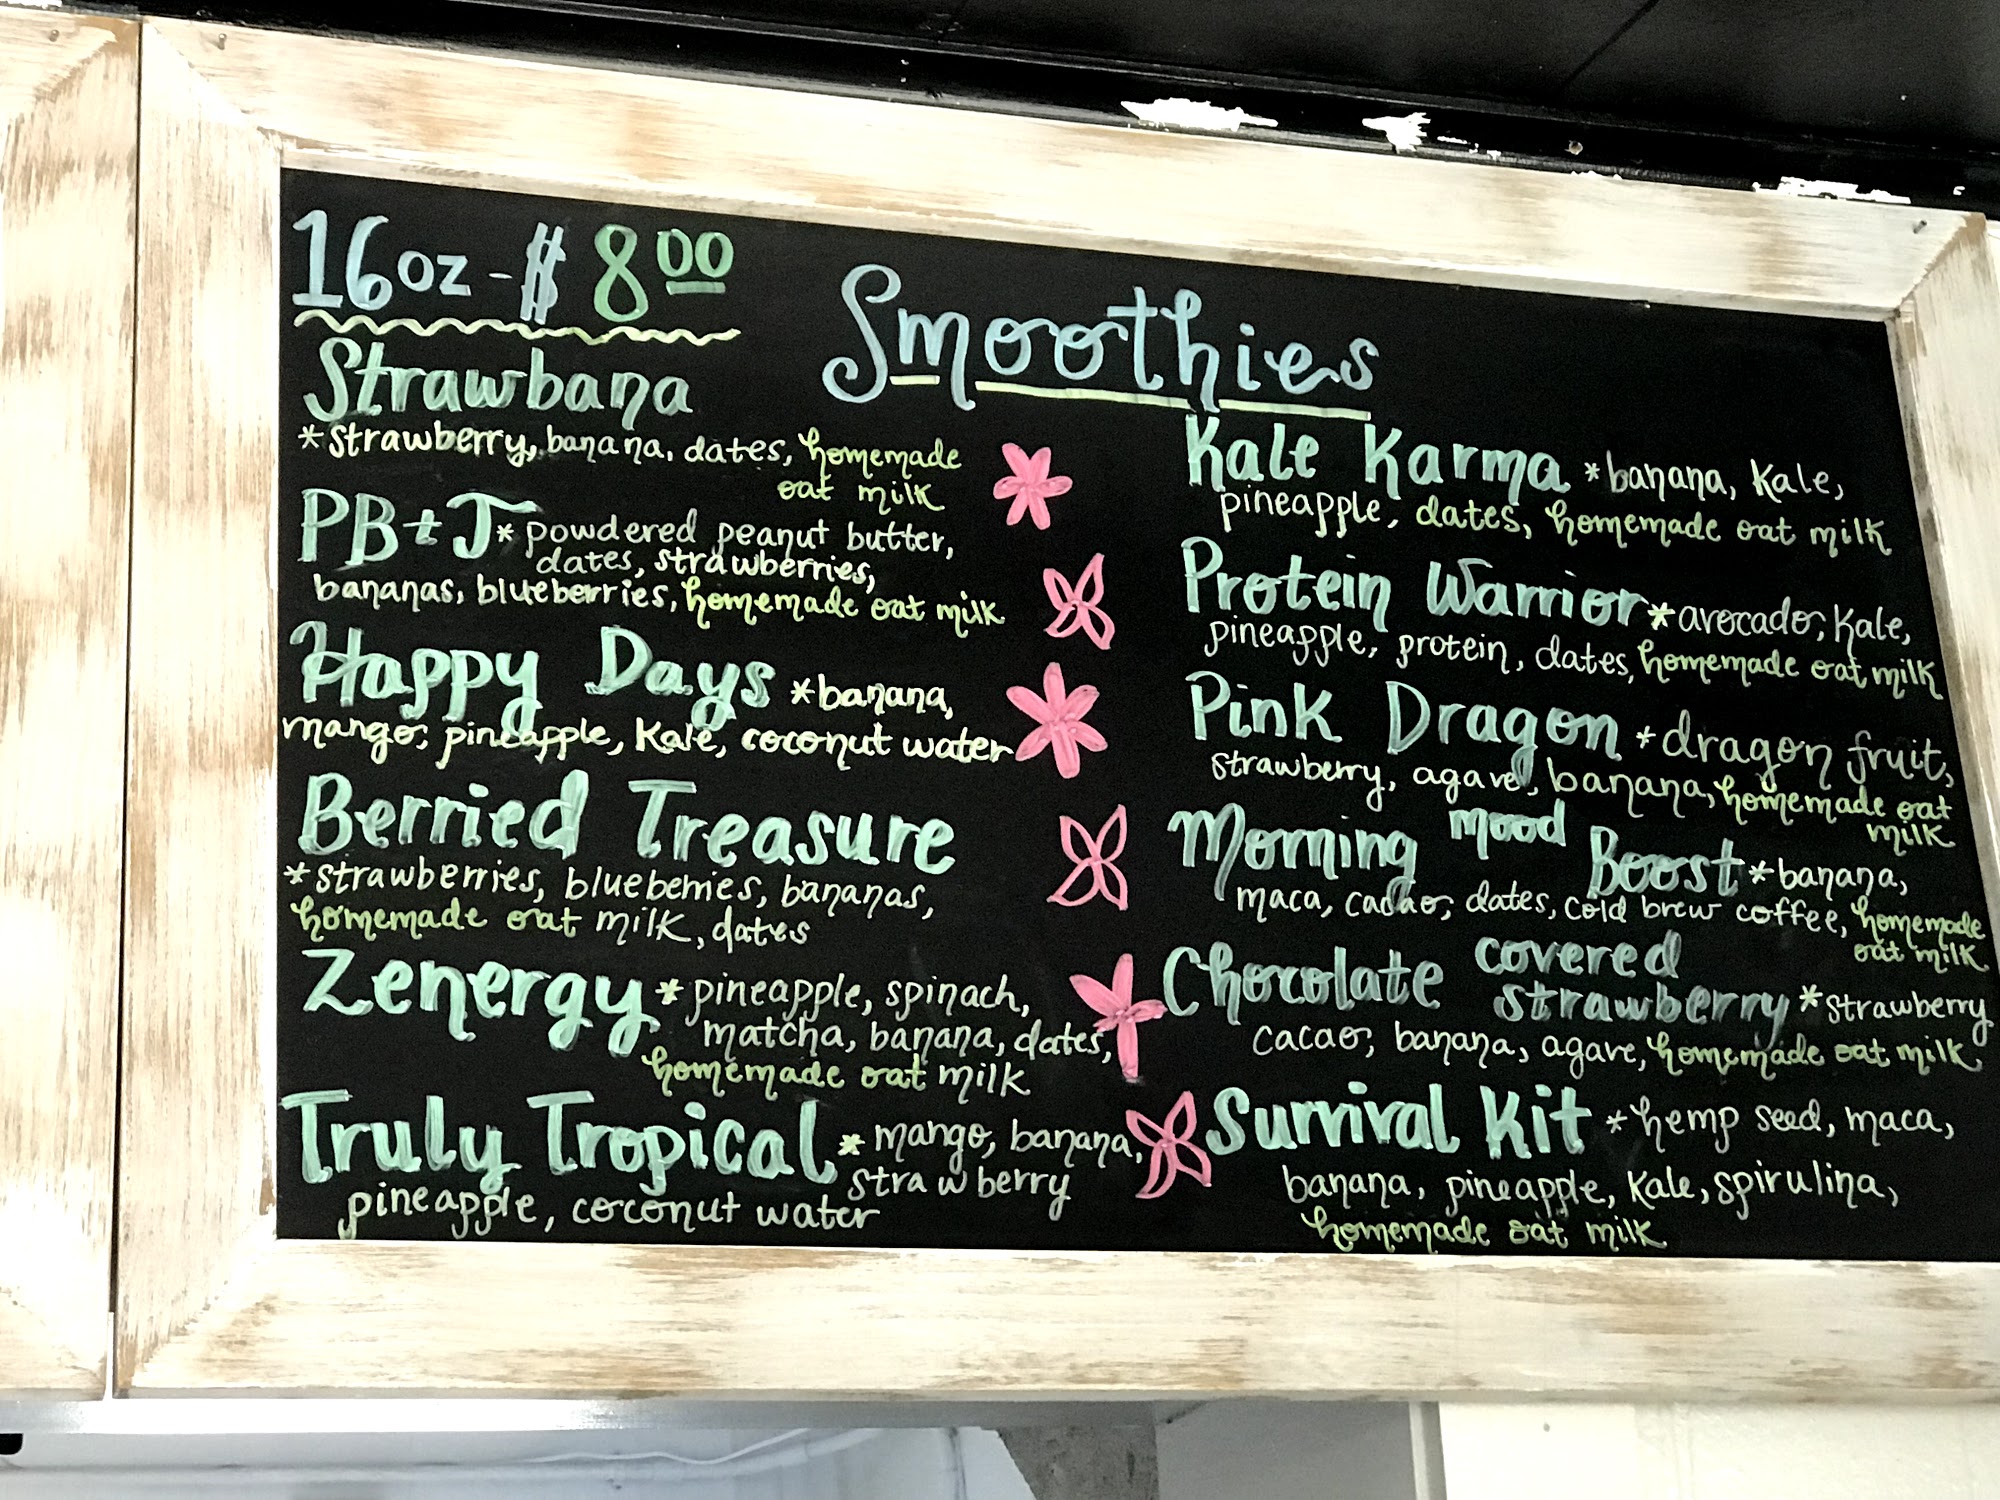 16oz - $ 8.00
Smoothies
Strawbana
*strawberry, banana, dates, homemade
oat milk
PB+J * powdered peanut butter,
dates, strawberries,
bananas, blueberries, homemade oat milk
Happy Days *banana,
mango, pineapple, Kale, coconut water
Berried Treasure
*strawberries, blueberries, bananas,
homemade oat milk, dates
Zenergy *pineapple, spinach,
matcha, banana, dates,
homemade oat milk
Truly Tropical *mango, banana,
strawberry
pineapple, coconut water
Kale Karma *banana, Kale,
pineapple, dates, homemade oat milk
Protein Warrior *avocado, Kale,
pineapple, protein, dates, homemade oat milk
Pink Dragon *dragon fruit,
strawberry, agave, banana, homemade oat
milk
Morning mood Boost *banana,
maca, cacao, dates, cold brew coffee, homemade
oat milk
Chocolate covered
strawberry *strawberry
cacao, banana, agave, homemade oat milk
Survival Kit *hemp seed, maca,
banana, pineapple, Kale, spirulina,
homemade oat milk